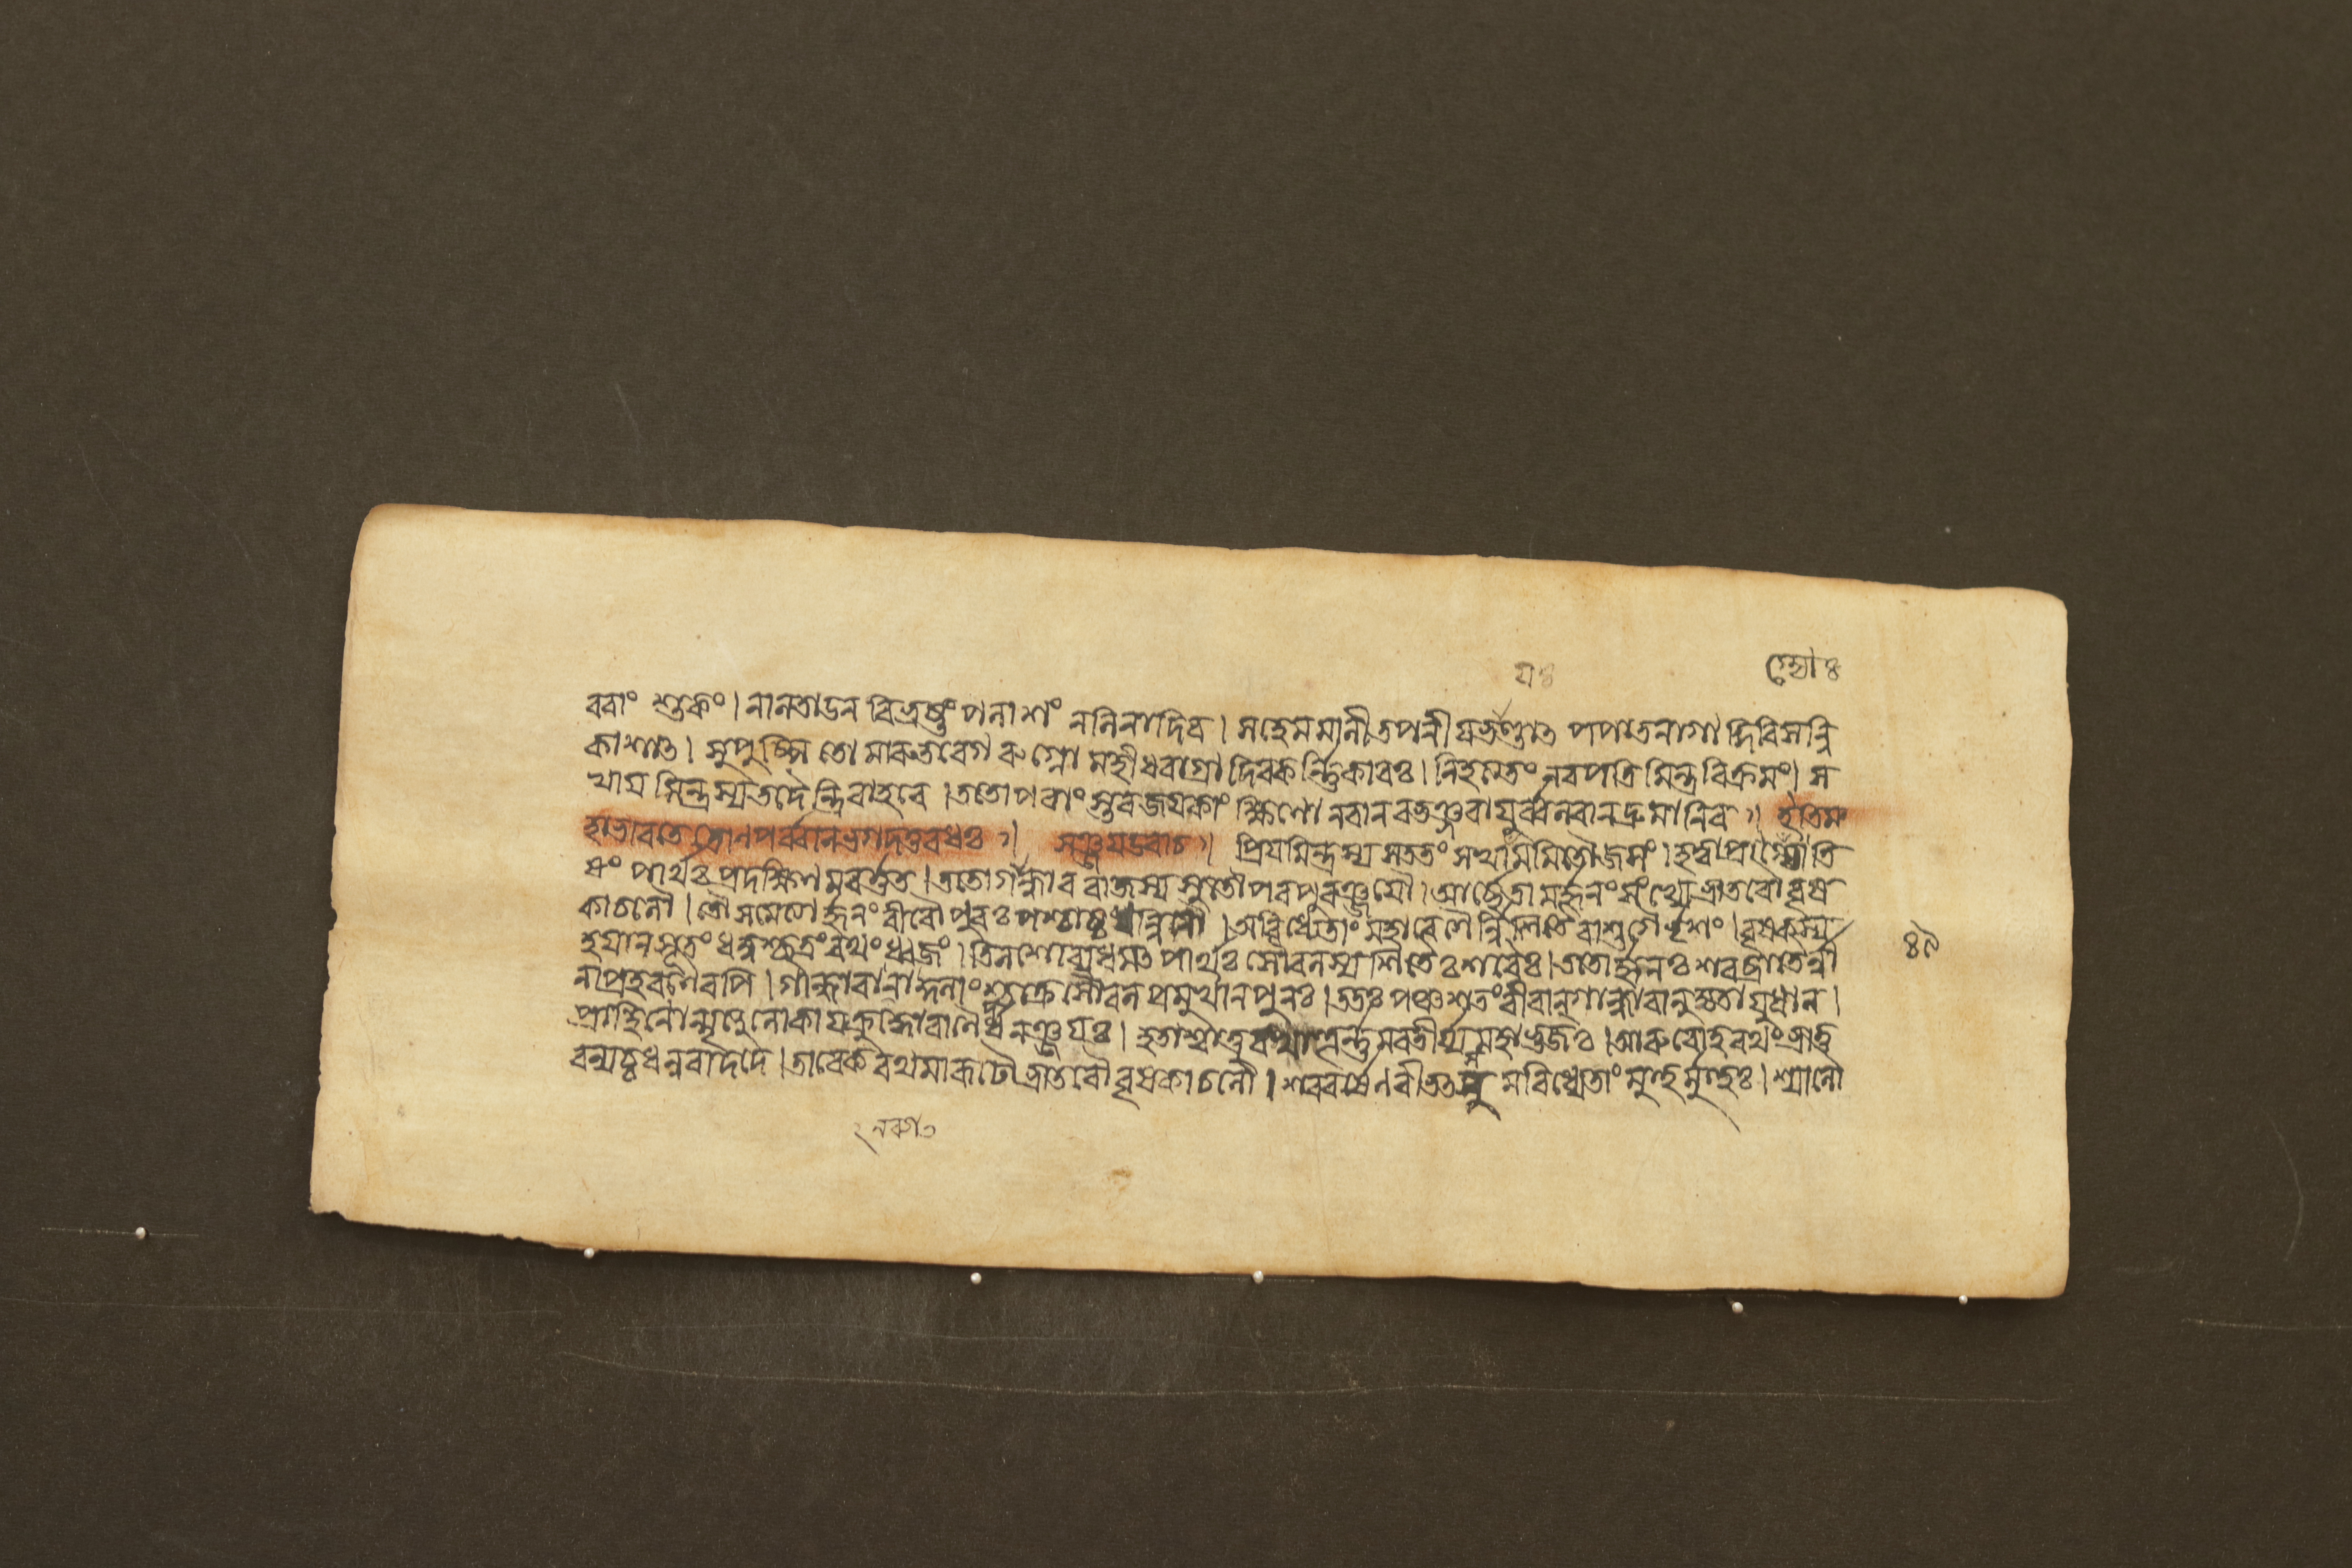 যঃ
বরাং শুকং। নালতাডন বিভ্রষ্টং পলাশং নলিনাদিব। স হেমমালী তপনীযভাণ্ডাত্ পপাত নাগাদ্গিরিসন্নি
কাশাত্। সুপুষ্পিতো মারুতবেগ রুগ্নো মহীধরাগ্রাদিব কর্ণিকারঃ। নিহত্য তং নরপতিমিন্দ্রবিক্রমং। স
খাযমিন্দ্রস্য তদৈন্দ্রিরাহবে। ততোপরাংস্তব জযকাংক্ষিণো নরান বভঞ্জ বাযুর্ব্বলবান দ্রুমানিব॥ ইতি ম
হাভারতে দ্রোণপর্ব্বনি ভগদত্তবধঃ॥ সঞ্জয উবাচ॥ প্রিযমিন্দ্রস্য সততং সখাযমমিতৌজসং। হত্বা প্রাগ্জ্যোতি
ষং পার্থঃ প্রদক্ষিণমবর্ত্তত। ততো গান্ধাররাজস্য সুতৌ পরপুরঞ্জযৌ। আর্চ্ছেতামর্জ্জুনং সংখ্যে ভ্রাতরৌ বৃষ
কাচলৌ। তৌ সমেত্যার্জ্জুনং বীরৌ পুরঃ পশ্চাচ্চ ধন্বিনৌ। অবিধ্যেতাং মহাবেগৈর্ন্নিশিতৈরাশুগৈর্ভৃশং। বৃষকস্য
হযান সূতং ধনুশ্ছত্রং রথং ধ্বজং। তিলশো ব্যধমত্ পার্থঃ সৌবলস্য শিতৈঃ শরৈঃ। ততোর্জ্জুনঃ শরব্রাতৈর্ন্না
নাপ্রহরণৈরপি। গান্ধারান ব্যাকুলাংশ্চক্রে সৌবলপ্রমুখান পুনঃ। ততঃ পঞ্চশতং বীরান্ গান্ধারানুদ্যতাযুধান।
প্রাহিণোন্মৃত্যুলোকায ক্রুদ্ধো বাণৈর্ধনঞ্জযঃ। হতাশ্বাত্তু রথাত্তূর্ণমবতীর্য্য মহাভুজঃ। আরুরোহ রথং ভ্রাতু
রন্যচ্চ ধনুরাদদে। তাবেকরথমারূঢৌ ভ্রাতরৌ বৃষকাচলৌ। শরবর্ষেণ বীভত্সুমবিধ্যেতাং মুহুর্মুহুঃ। শ্যালৌ
৪৯